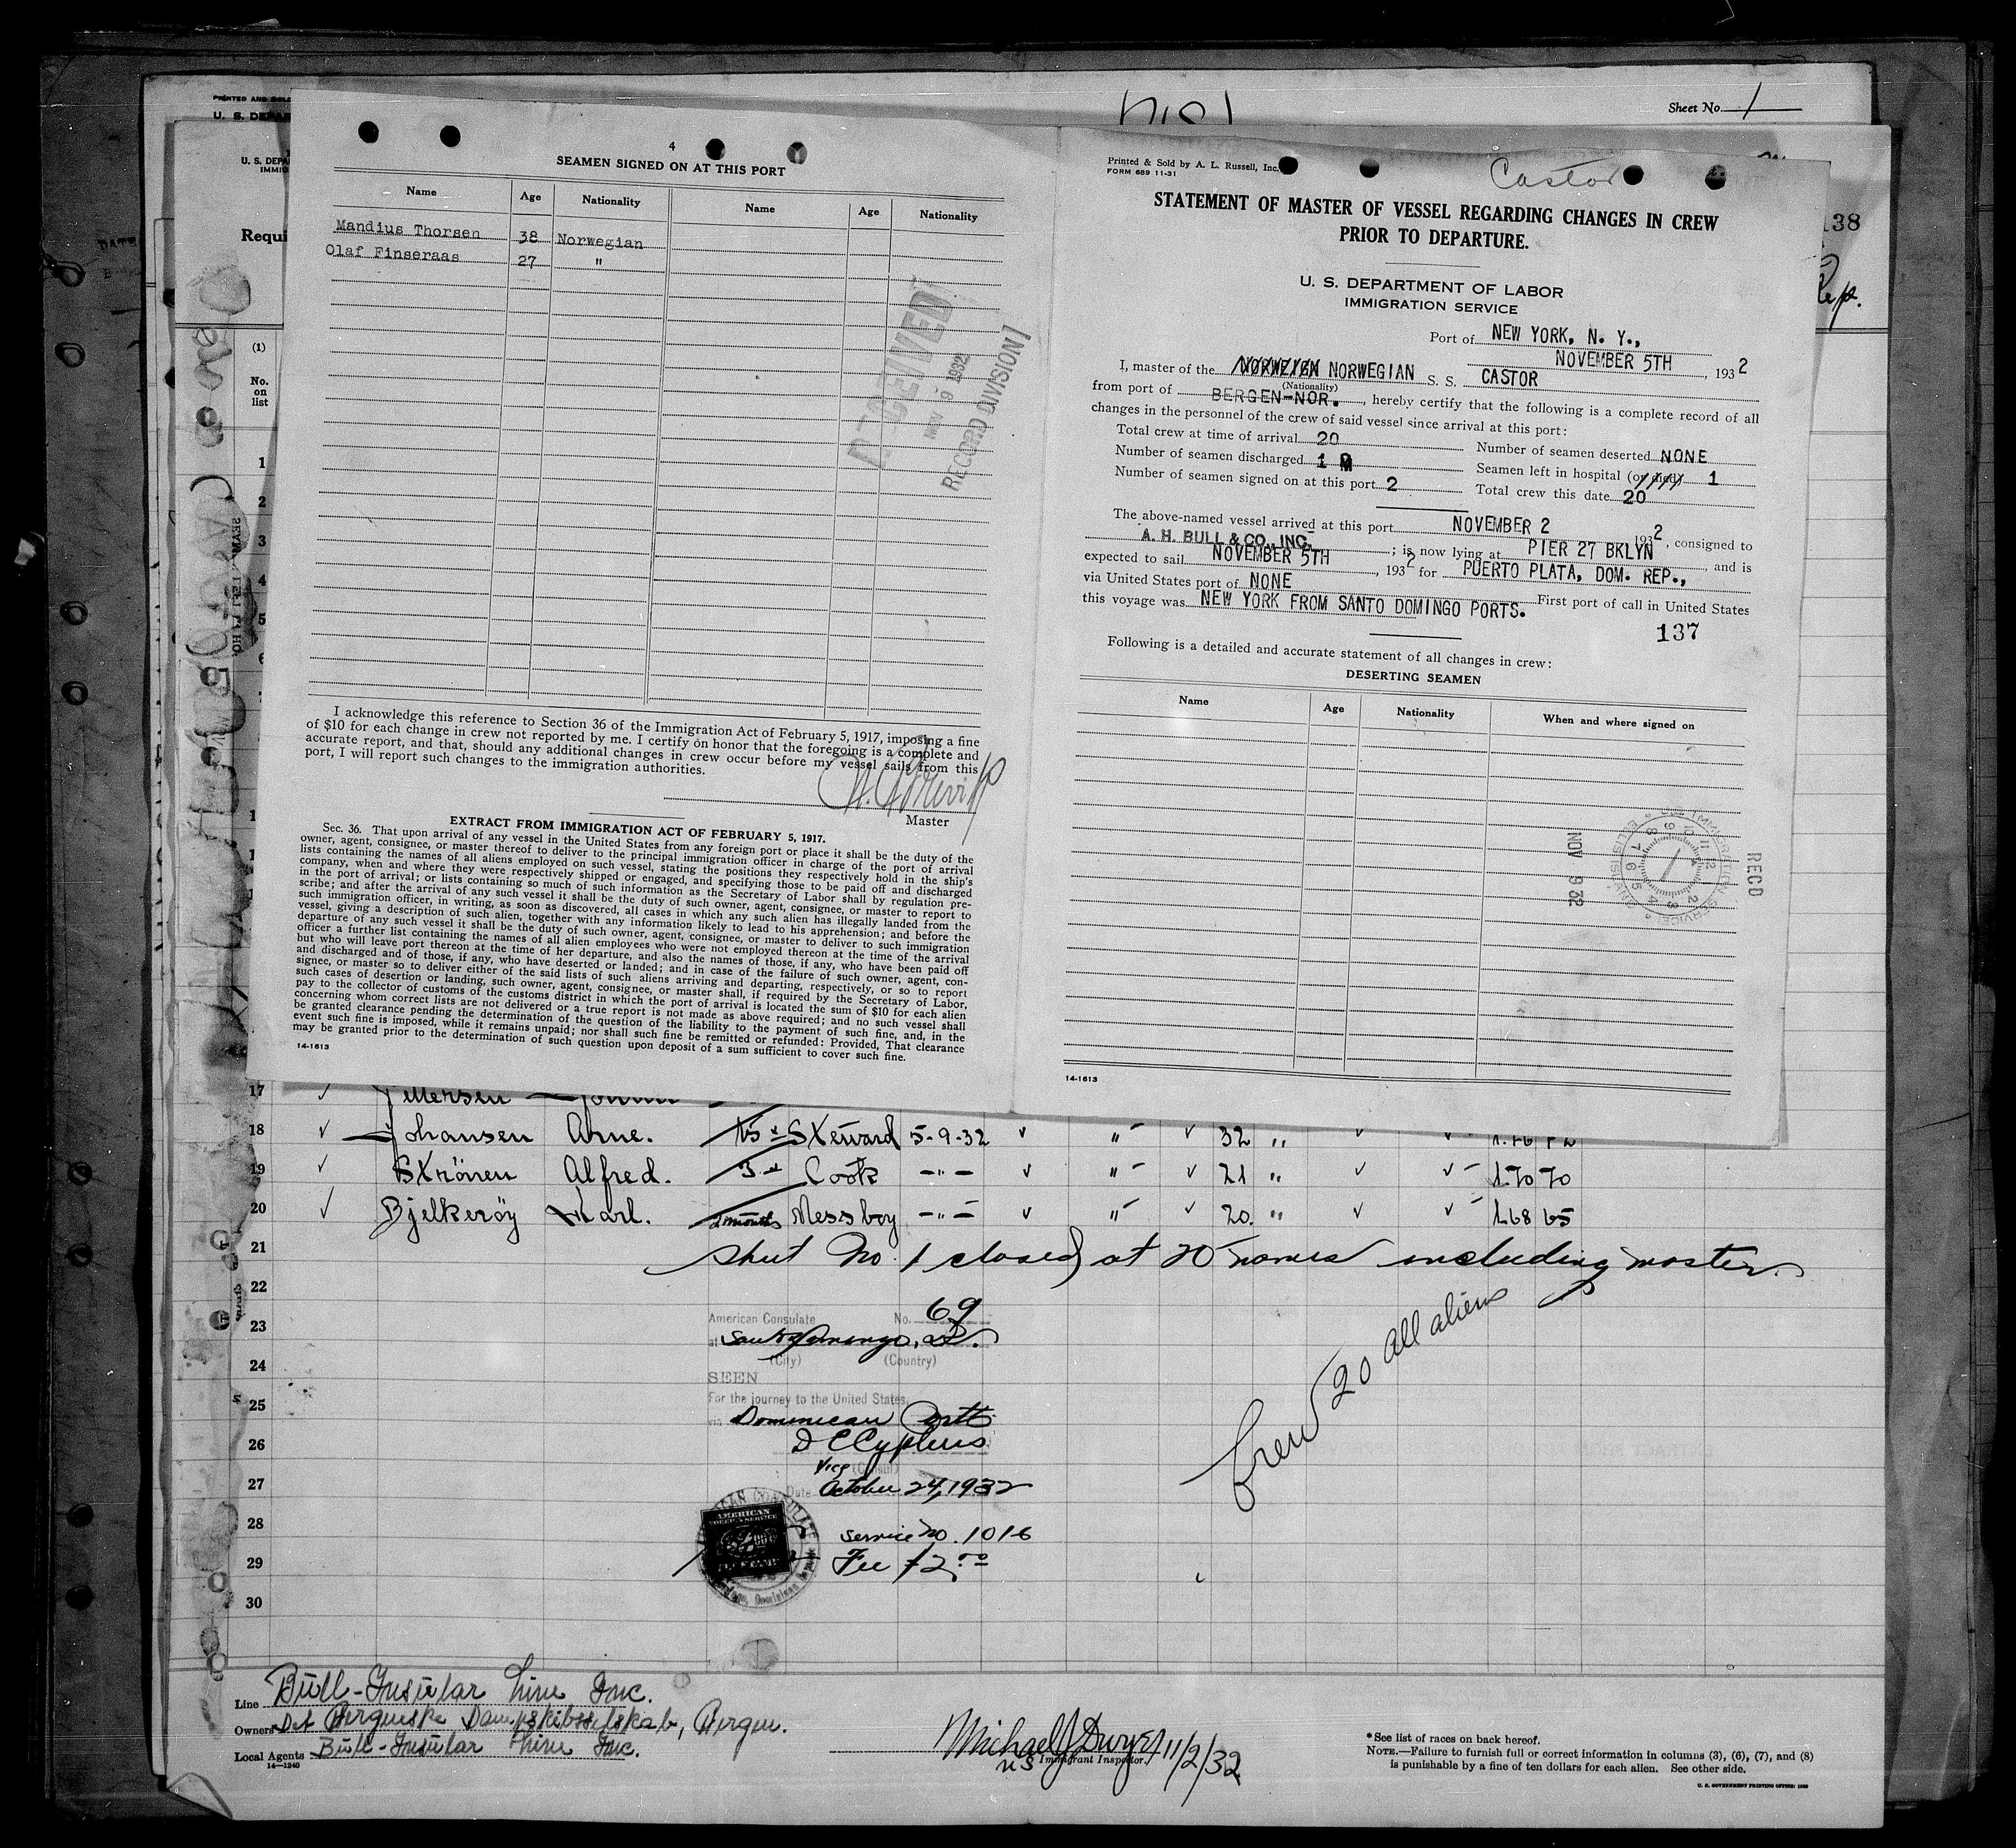 PRINTED AND SOLD
U. S. DEPAR
Sheet No. 1
U. S. DEPA
IMMIG
Requi
138
Rep.
(1)
No.
on
list
1
2
3
4
5
4
SEAMEN SIGNED ON AT THIS PORT
Name Age Nationality Name Age Nationality
Mandius Thorsen 38 Norwegian
Olaf Finseraas 27 "
RECEIVED
NOV 9 1932
RECORD DIVISION
I acknowledge this reference to Section 36 of the Immigration Act of February 5, 1917, imposing a fine
of $10 for each change in crew not reported by me. I certify on honor that the foregoing is a complete and
accurate report, and that, should any additional changes in crew occur before my vessel sails from this
port, I will report such changes to the immigration authorities.
Master
EXTRACT FROM IMMIGRATION ACT OF FEBRUARY 5, 1917.
Sec. 36. That upon arrival of any vessel in the United States from any foreign port or place it shall be the duty of the
owner, agent, consignee, or master thereof to deliver to the principal immigration officer in charge of the port of arrival
lists containing the names of all aliens employed on such vessel, stating the positions they respectively hold in the ship's
company, when and where they were respectively shipped or engaged, and specifying those to be paid off and discharged
in the port of arrival; or lists containing so much of such information as the Secretary of Labor shall by regulation pre-
scribe; and after the arrival of any such vessel it shall be the duty of such owner, agent, consignee, or master to report to
such immigration officer, in writing, as soon as discovered, all cases in which any such alien has illegally landed from the
vessel, giving a description of such alien, together with any information likely to lead to his apprehension; and before the
departure of any such vessel it shall be the duty of such owner, agent, consignee, or master to deliver to such immigration
officer a further list containing the names of all alien employees who were not employed thereon at the time of the arrival
but who will leave port thereon at the time of her departure, and also the names of those, if any, who have been paid off
and discharged and of those, if any, who have deserted or landed; and in case of the failure of such owner, agent, con-
signee, or master so to deliver either of the said lists of such aliens arriving and departing, respectively, or so to report
such cases of desertion or landing, such owner, agent, consignee, or master shall, if required by the Secretary of Labor,
pay to the collector of customs of the customs district in which the port of arrival is located the sum of $10 for each alien
concerning whom correct lists are not delivered or a true report is not made as above required; and no such vessel shall
be granted clearance pending the determination of the question of the liability to the payment of such fine, and, in the
event such fine is imposed, while it remains unpaid; nor shall such fine be remitted or refunded: Provided, That clearance
may be granted prior to the determination of such question upon deposit of a sum sufficient to cover such fine.
14-1613
Printed & Sold by A. L. Russell, Inc.
FORM 689 11-31
Castor
STATEMENT OF MASTER OF VESSEL REGARDING CHANGES IN CREW
PRIOR TO DEPARTURE.
U. S. DEPARTMENT OF LABOR
IMMIGRATION SERVICE
Port of NEW YORK, N. Y.,
NOVEMBER 5TH, 1932
I, master of the NORWEGIAN S. S. CASTOR
(Nationality)
from port of BERGEN-NOR., hereby certify that the following is a complete record of all
changes in the personnel of the crew of said vessel since arrival at this port:
Total crew at time of arrival 20 Number of seamen deserted NONE
Number of seamen discharged 1 Seamen left in hospital (or died) 1
Number of seamen signed on at this port 2 Total crew this date 20
The above-named vessel arrived at this port NOVEMBER 2 1932, consigned to
A. H. BULL & CO., INC. ; is now lying at PIER 27 BKLYN, and is
expected to sail NOVEMBER 5TH, 1932 for PUERTO PLATA, DOM. REP.,
via United States port of NONE First port of call in United States
this voyage was NEW YORK FROM SANTO DOMINGO PORTS.
137
Following is a detailed and accurate statement of all changes in crew:
DESERTING SEAMEN
Name Age Nationality When and where signed on
RECD
NOV 9 32
U.S. IMMIGRATION SERVICE ELLIS ISLAND
14-1613
17
18 Johansen Arne. Steward 5-9-32 " 32 "
19 Strönen Alfred. Cook -"- " 21 " 1.70 70
20 Bjelkeröy Karl. 2 months Messboy -"- " 20. " 1.68 65
21 Sheet No. 1 closed at 20 names including master
22
23
24
25
26
27
28
29
30
American Consulate No. 69
at Santo Domingo, D.R.
(City) (Country)
SEEN
For the journey to the United States,
via Dominican Ports
Vice (Consul)
Date October 24, 1932
Service No. 1016
Fee $2.00
AMERICAN
FOREIGN SERVICE
Crew 20 all aliens
Line Bull-Insular Line Inc.
Owners Det Bergenske Dampskibsselskab, Bergen.
Local Agents Bull-Insular Line Inc.
14-1240
Michael J Dwyer 11/2/32
US Immigrant Inspector.
*See list of races on back hereof.
NOTE.—Failure to furnish full or correct information in columns (3), (6), (7), and (8)
is punishable by a fine of ten dollars for each alien. See other side.
U. S. GOVERNMENT PRINTING OFFICE: 1930